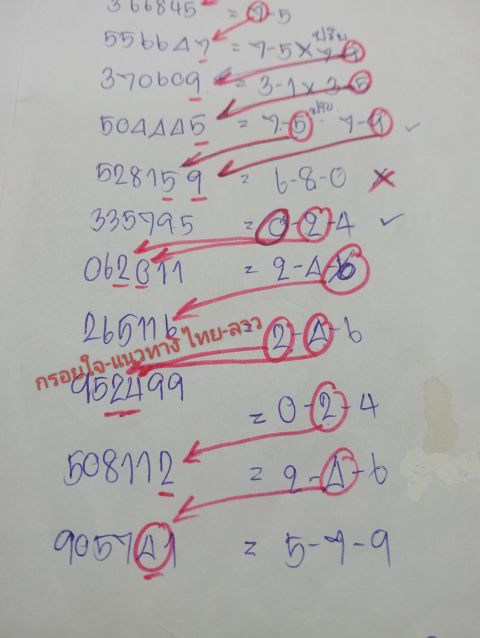 366845 = 7-5
556647 = 7-5 × 7-9 ปรับ
370609 = 3-1 × 3-5
504445 = 7-5 ปรับ 7-9 ✓
528159 = 6-8-0 ×
335795 = 0-2-4 ✓
062011 = 2-4-6
265116 = 2-4-6
กรอยใจ-แนวทาง ไทย-ลาว
952499
= 0-2-4
508112 = 2-4-6
905741 = 5-7-9